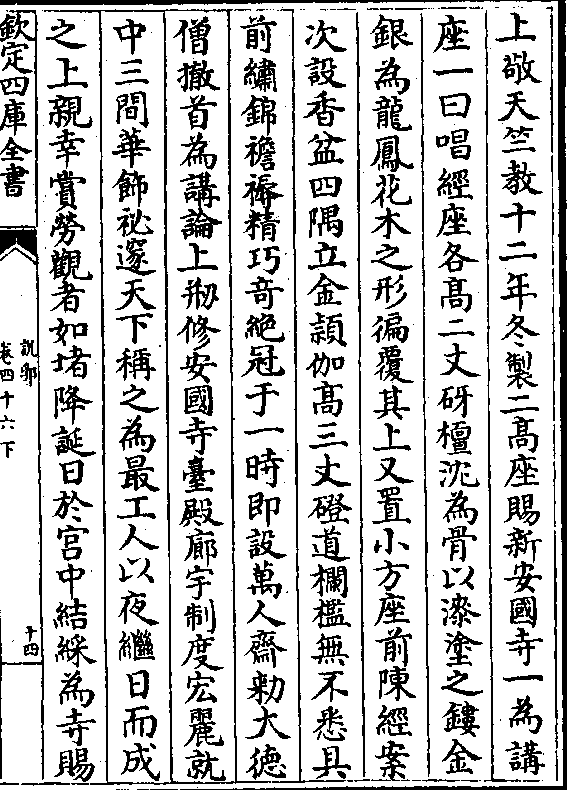 上敬天竺教十二年冬製二髙座賜新安國寺一為講
座一曰唱經座各髙二丈砑檀沈為骨以漆塗之鏤金
銀為龍鳳花木之形徧覆其上又置小方座前陳經案
次設香盆四隅立金頴伽髙三丈磴道欄檻無不悉具
前繡錦襜褥精巧竒絶冠于一時即設萬人齋勑大德
僧撤首為講論上剏修安國寺臺殿廊宇制度宏麗就
中三間華飾祕邃天下稱之為最工人以夜繼日而成
之上親幸賞勞觀者如堵降誕日於宫中結綵為寺賜
欽定四庫全書
説郛
卷四十六下
十四